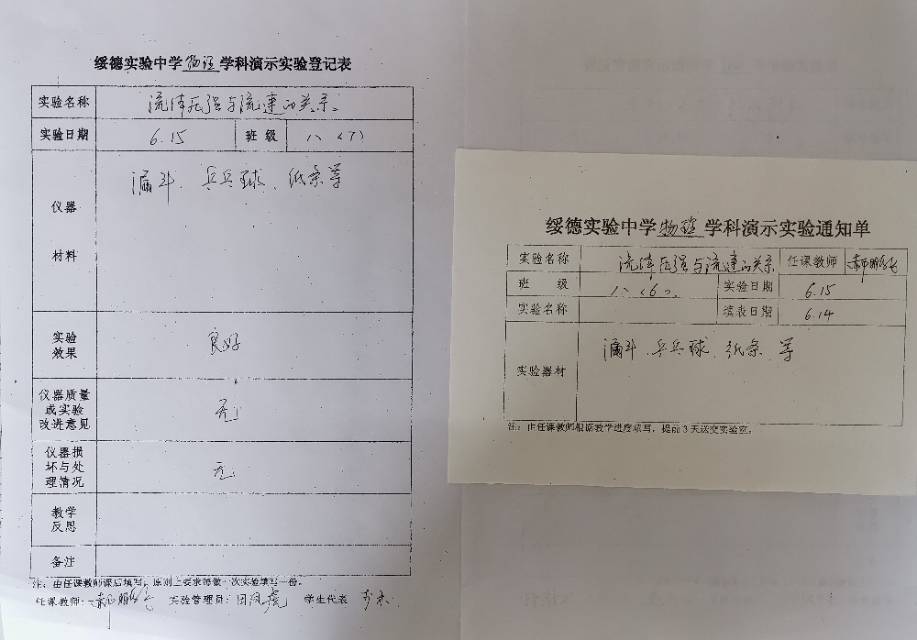 绥德实验中学物理学科演示实验登记表
实验名称 流体压强与流速的关系
实验日期 6.15 班级 八(7)
仪器
材料
漏斗、乒乓球、纸条等
实验
效果
良好
仪器质量
或实验
改进意见
无
仪器损
坏与处
理情况
无
教学
反思
备注
注:由任课教师课后填写,原则上要求每做一次实验填写一份。
任课教师: 实验管理员: 学生代表
绥德实验中学物理学科演示实验通知单
实验名称 流体压强与流速的关系 任课教师
班 级 八(6) 实验日期 6.15
实验名称 填表日期 6.14
实验器材 漏斗、乒乓球、纸条等
注:由任课教师根据教学进度填写,提前3天送交实验室。